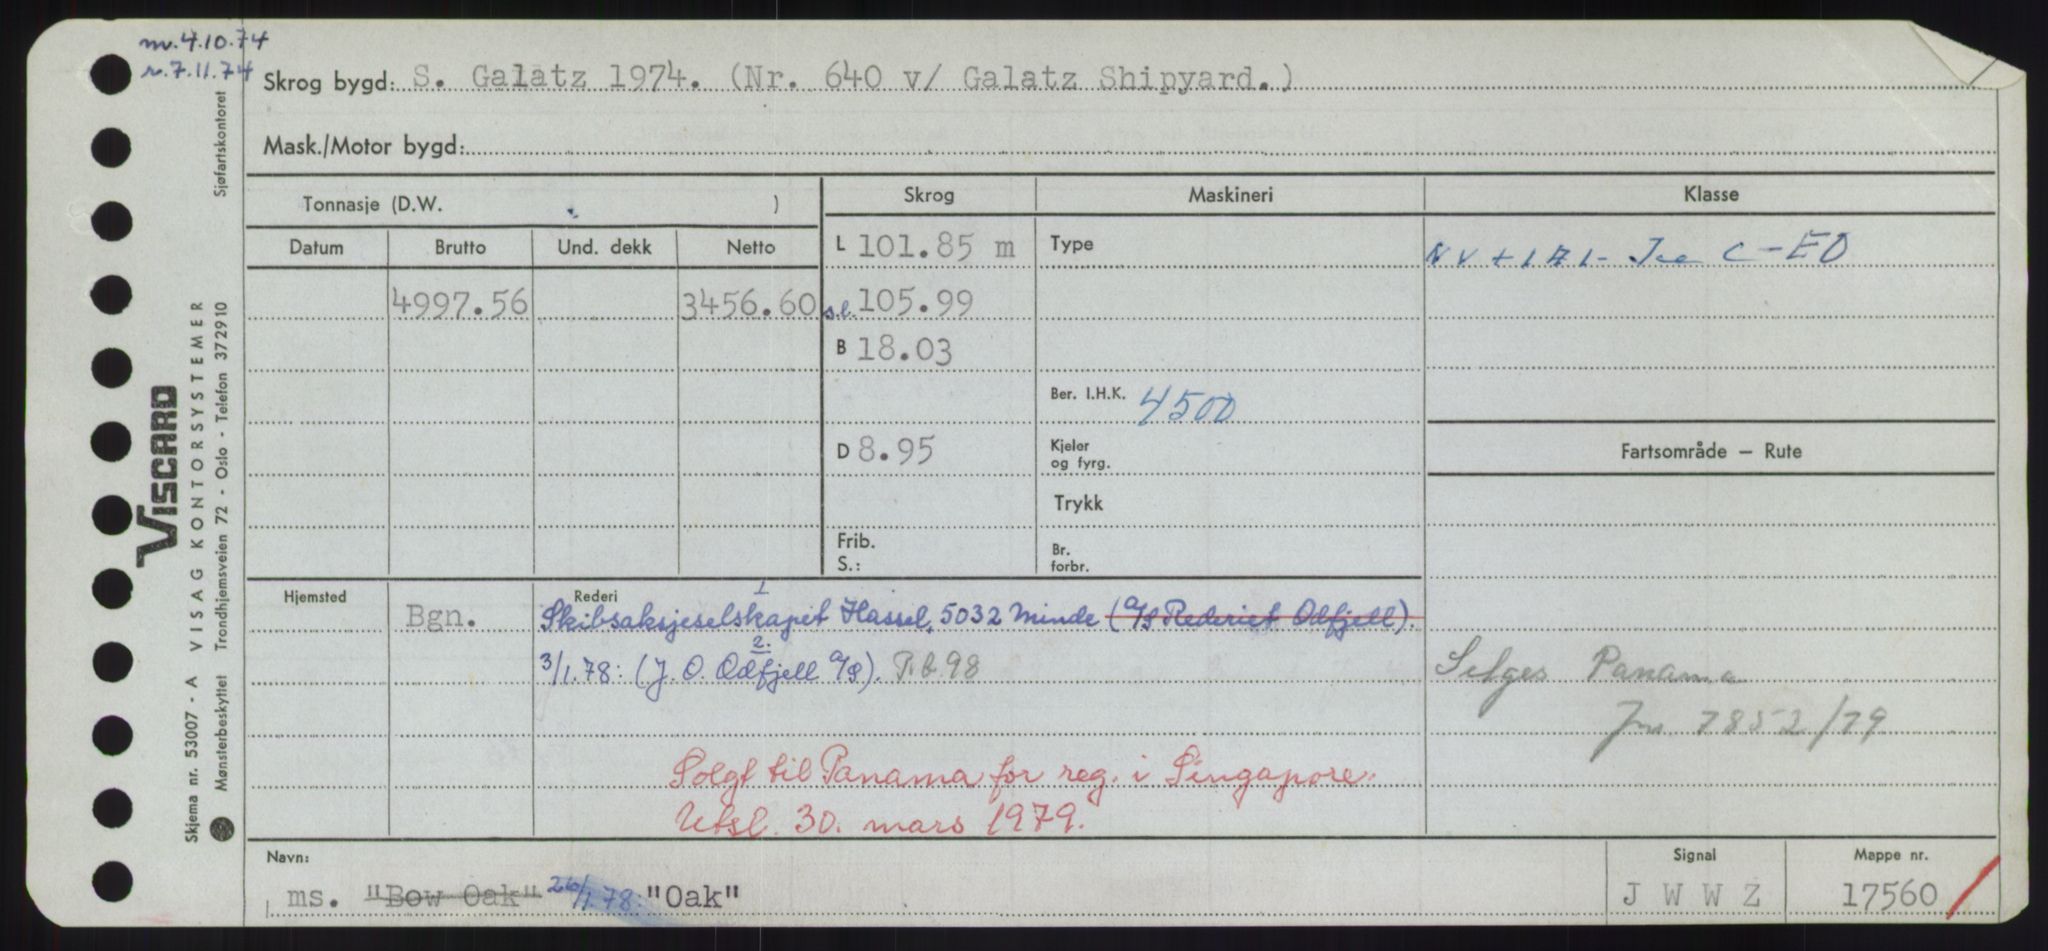 m. 4.10.74
r. 7.11.74
Skrog bygd: S. Galatz 1974. (Nr. 640 v/ Galatz Shipyard.)
Mask./Motor bygd:
Tonnasje (D.W. )
Datum Brutto Und. dekk Netto
4997.56 3456.60
Skrog
L 101.85 m
s.l. 105.99
B 18.03
D 8.95
Frib.
S.:
Maskineri
Type
Ber. I.H.K. 4500
Kjeler
og fyrg.
Trykk
Br.
forbr.
Klasse
NV + 1A1- Ice C - EO
Fartsområde – Rute
Selges Panama
Jnr. 7852/79
Hjemsted Bgn.
Rederi
1
Skibsaksjeselskapet Hassel, 5032 Minde (A/S Rederiet Odfjell).
2.
3/1.78: (J. O. Odfjell A/S). P.b. 98
Solgt til Panama for reg. i Singapore.
Utsl. 30. mars 1979.
Navn:
ms. "Bow Oak" 26/1.78: "Oak"
Signal
J W W Z
Mappe nr.
17560
VISCARD
VISAG KONTORSYSTEMER
Skjema nr. 53007 - A
Mønsterbeskyttet Trondhjemsveien 72 - Oslo - Telefon 372910
Sjøfartskontoret